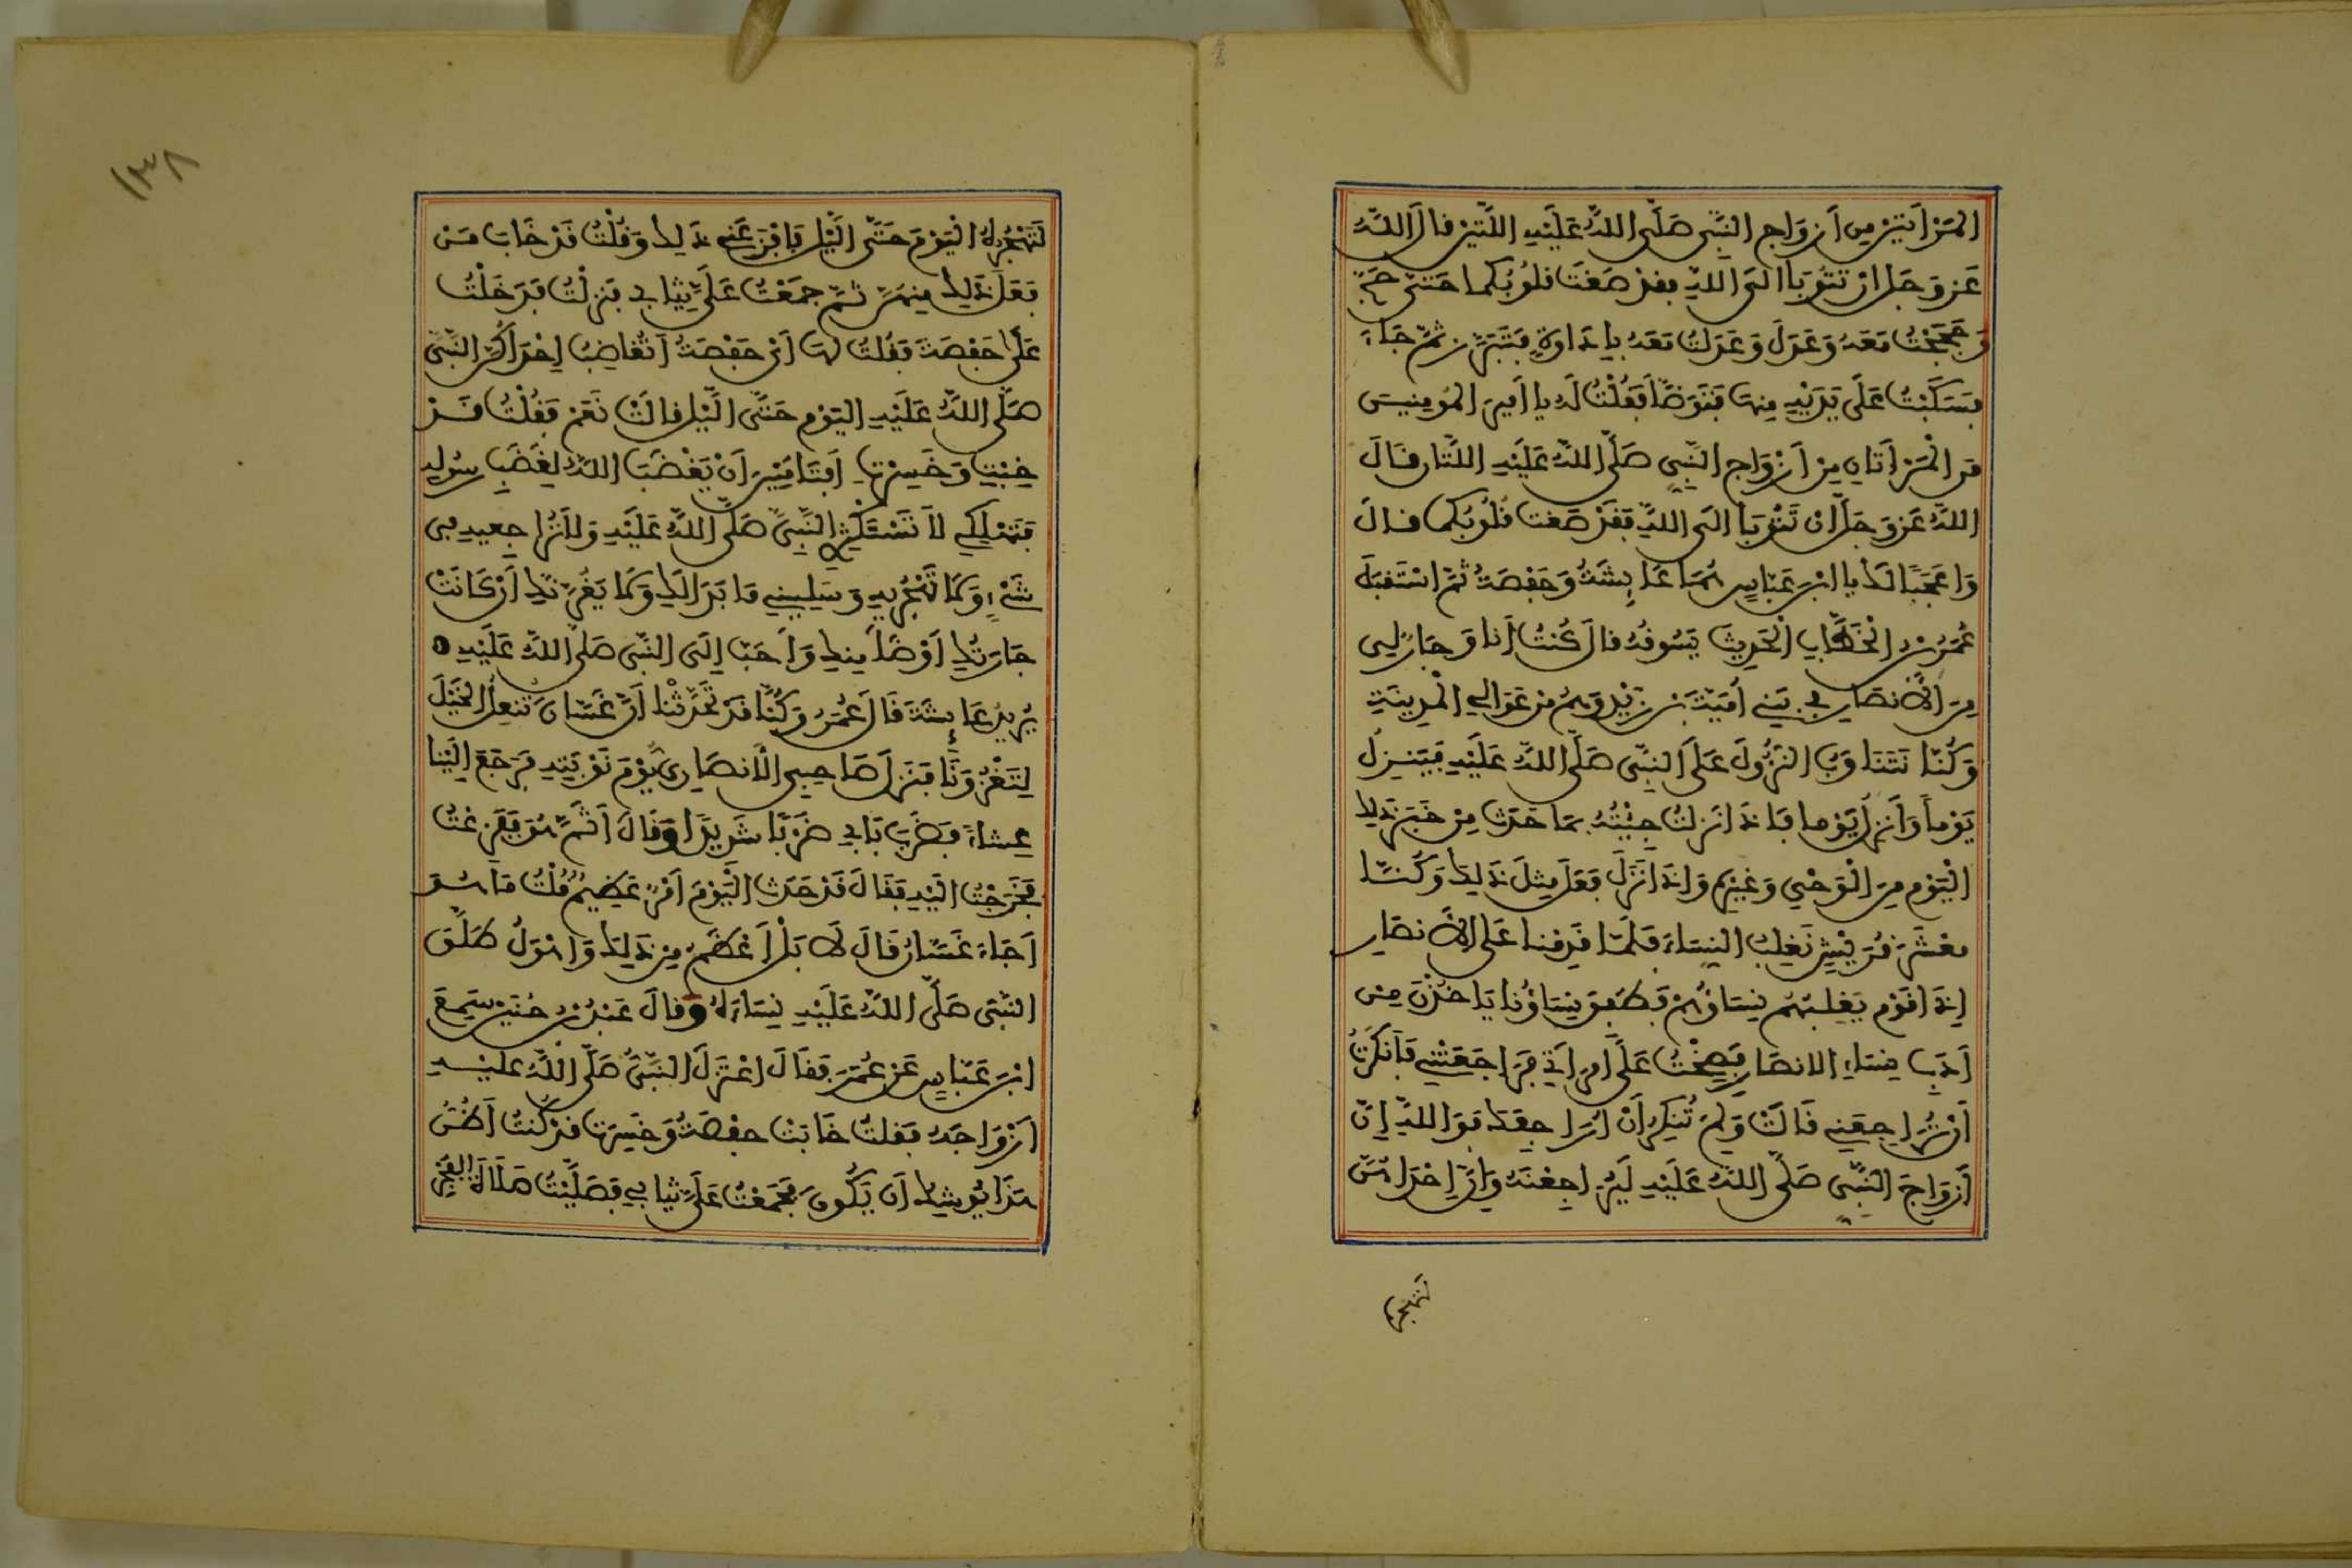 المَرْأَتَيْنِ مِن أَزْوَاجِ النَّبِيِّ صَلَّى اللَّهُ عَلَيْهِ اللَّتَيْنِ قَالَ اللَّهُ
عَزَّ وَجَلَّ إِن تَتُوبَا إِلَى اللَّهِ فَقَدْ صَغَتْ قُلُوبُكُمَا حَتَّى حَجَّ
وَحَجَجْتُ مَعَهُ وَعَدَلَ وَعَدَلْتُ مَعَهُ بِإِدَاوَةٍ فَتَبَرَّزَ ثُمَّ جَاءَ
فَسَكَبْتُ عَلَى يَدَيْهِ مِنْهَا فَتَوَضَّأَ فَقُلْتُ لَهُ يَا أَمِيرَ الْمُومِنِينَ
مَنِ الْمَرْأَتَانِ مِنْ أَزْوَاجِ النَّبِيِّ صَلَّى اللَّهُ عَلَيْهِ اللَّتَانِ قَالَ
اللَّهُ عَزَّ وَجَلَّ إِن تَتُوبَا إِلَى اللَّهِ فَقَدْ صَغَتْ قُلُوبُكُمَا قَالَ
وَاعَجَبًا لَكَ يَا ابْنَ عَبَّاسٍ هُمَا عَائِشَةُ وَحَفْصَةُ ثُمَّ اسْتَقْبَلَ
عُمَرُ بْنُ الْخَطَّابِ الْحَدِيثَ يَسُوقُهُ قَالَ كُنْتُ أَنَا وَجَارٌ لِي
مِنَ الأَنصَارِ فِي بَنِي أُمَيَّةَ بْنِ زَيْدٍ وَهُمْ مِنْ عَوَالِي الْمَدِينَةِ
وَكُنَّا نَتَنَاوَبُ النُّزُولَ عَلَى النَّبِيِّ صَلَّى اللَّهُ عَلَيْهِ فَيَنْزِلُ
يَوْمًا وَأَنْزِلُ يَوْمًا فَإِذَا نَزَلْتُ جِئْتُهُ بِمَا حَدَثَ مِنْ خَبَرِ ذَلِكَ
الْيَوْمِ مِنَ الْوَحْيِ وَغَيْرِهِ وَإِذَا نَزَلَ فَعَلَ مِثْلَ ذَلِكَ وَكُنَّا
مَعْشَرَ قُرَيْشٍ نَغْلِبُ النِّسَاءَ فَلَمَّا قَدِمْنَا عَلَى الأَنصَارِ
إِذَا قَوْمٌ يَغْلِبُهُمْ نِسَاؤُهُمْ فَطَفِقَ نِسَاؤُنَا يَاخُذْنَ مِنْ
أَدَبِ نِسَاءِ الانصَارِ فَصِحْتُ عَلَى امْرَأَتِي فَرَاجَعَتْنِي فَأَنكَرْتُ
أَنْ تُرَاجِعَنِي قَالَتْ وَلِمَ تُنكِرُ أَنْ أُرَاجِعَكَ فَوَاللَّهِ إِنَّ
أَزْوَاجَ النَّبِيِّ صَلَّى اللَّهُ عَلَيْهِ لَيُرَاجِعْنَهُ وَإِنَّ إِحْدَاهُنَّ
لتهجر
١٣٨
لَتَهْجُرُهُ الْيَوْمَ حَتَّى اللَّيْلِ فَأَفْزَعَنِي ذَلِكَ وَقُلْتُ قَدْ خَابَ مَنْ
فَعَلَ ذَلِكَ مِنْهُنَّ ثُمَّ جَمَعْتُ عَلَيَّ ثِيَابِي فَنَزَلْتُ فَدَخَلْتُ
عَلَى حَفْصَةَ فَقُلْتُ لَهَا أَيْ حَفْصَةُ أَتُغَاضِبُ إِحْدَاكُنَّ النَّبِيَّ
صَلَّى اللَّهُ عَلَيْهِ الْيَوْمَ حَتَّى اللَّيْلِ قَالَتْ نَعَمْ فَقُلْتُ قَدْ
خِبْتِ وَخَسِرْتِ أَفَتَامَنِينَ أَنْ يَغْضَبَ اللَّهُ لِغَضَبِ رَسُولِهِ
فَتَهْلِكِي لاَ تَسْتَكْثِرِي النَّبِيَّ صَلَّى اللَّهُ عَلَيْهِ وَلاَ تُرَاجِعِيهِ فِي
شَيْءٍ وَلاَ تَهْجُرِيهِ وَسَلِينِي مَا بَدَا لَكِ وَلاَ يَغُرَّنَّكِ أَنْ كَانَتْ
جَارَتُكِ أَوْضَأَ مِنكِ وَأَحَبَّ إِلَى النَّبِيِّ صَلَّى اللَّهُ عَلَيْهِ
يُرِيدُ عَائِشَةَ قَالَ عُمَرُ وَكُنَّا قَدْ تَحَدَّثْنَا أَنَّ غَسَّانَ تُنْعِلُ الْخَيْلَ
لِتَغْزُوَنَا فَنَزَلَ صَاحِبِي الأَنصَارِيُّ يَوْمَ نَوْبَتِهِ فَرَجَعَ إِلَيْنَا
عِشَاءً فَضَرَبَ بَابِي ضَرْبًا شَدِيدًا وَقَالَ أَثَمَّ هُوَ فَفَزِعْتُ
فَخَرَجْتُ إِلَيْهِ فَقَالَ قَدْ حَدَثَ الْيَوْمَ أَمْرٌ عَظِيمٌ قُلْتُ مَا هُوَ
أَجَاءَ غَسَّانُ قَالَ لاَ بَلْ أَعْظَمُ مِنْ ذَلِكَ وَأَهْوَلُ طَلَّقَ
النَّبِيُّ صَلَّى اللَّهُ عَلَيْهِ نِسَاءَهُ وَقَالَ عُبَيْدُ بْنُ حُنَيْنٍ سَمِعَ
ابْنَ عَبَّاسٍ عَنْ عُمَرَ فَقَالَ اعْتَزَلَ النَّبِيُّ صَلَّى اللَّهُ عَلَيْهِ
أَزْوَاجَهُ فَقُلْتُ خَابَتْ حَفْصَةُ وَخَسِرَتْ قَدْ كُنْتُ أَظُنُّ
هَذَا يُوشِكُ أَن يَكُونَ فَجَمَعْتُ عَلَيَّ ثِيَابِي فَصَلَّيْتُ صَلَاةَ الفَجْرِ